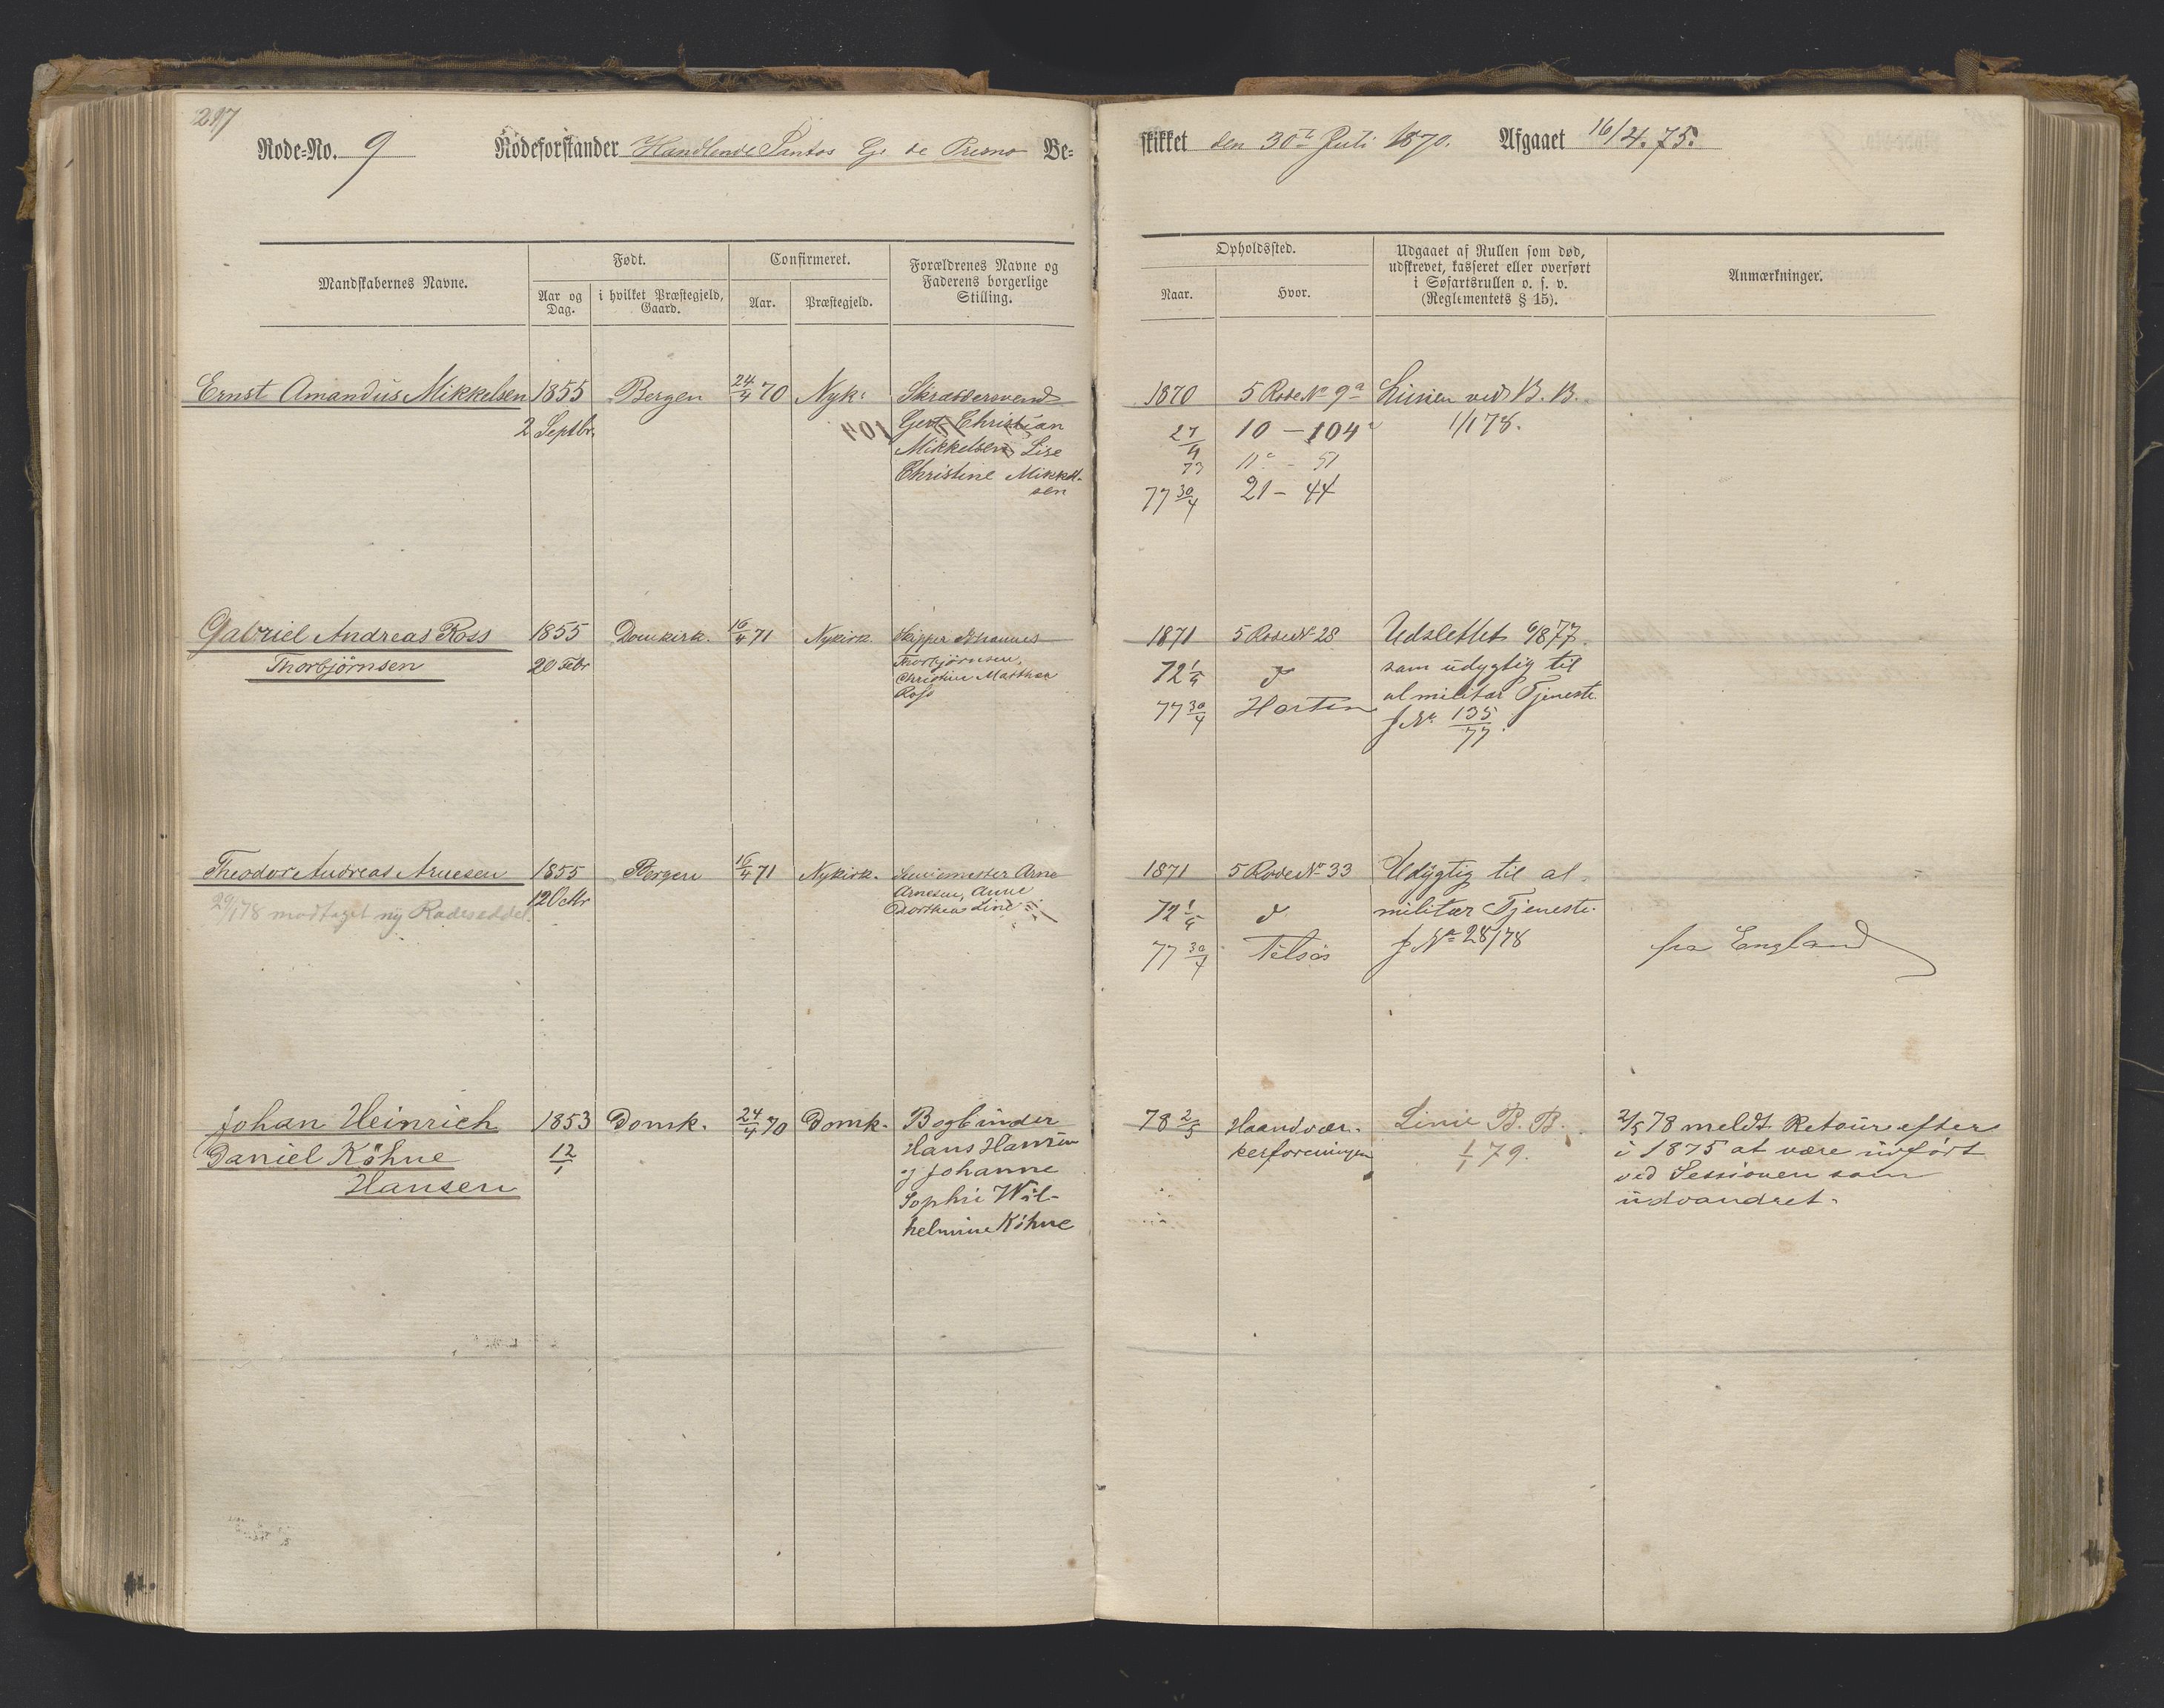 217
Rode-No. 9 Rodeforstander Handlende Santos G. de Presno Be=
skikket den 30te Juli 1870. Afgaaet 16/4.75.
Mandskabernes Navne.
Født.
Aar og Dag.
i hvilket Præstegjeld, Gaard.
Confirmeret.
Aar.
Præstegjeld.
Forældrenes Navne og
Faderens borgerlige
Stilling.
Opholdssted.
Naar.
Hvor.
Udgaaet af Rullen som død,
udskrevet, kasseret eller overført
i Søfartsrullen o. s. v.
(Reglementets § 15).
Anmærkninger.
Ernst Amandus Mikkelsen 1855 Bergen 24/4 70 Nyk: Skræddersvend 1870 5 Rode No 9a Linien ved B. B.
2 Septbr. Gert Christian 27/4 73 10 – 104a 1/1 78.
Mikkelsen, Lise 11te – 51
Christine Mikkel- 77 30/4 21 – 44
sen
Gabriel Andreas Ross 1855 Domkirk. 16/4 71 Nykirk. Skipper Johannes 1871 5 Rode No 28 Udslettet 6/8 77.
Thorbjörnsen 20 Febr Thorbjörnsen, 72 1/4 d som udygtig til
Christine Matthea 77 30/4 Horten al militær Tjeneste.
Ross J No 135/77.
Theodor Andreas Arnesen 1855 Bergen 16/4 71 Nykirk. Arne 1871 5 Rode No 33 Udygtig til al
29/1 78 modtaget ny Rodeseddel. 12 Octbr Arnesen, Anne 72 1/4 d militær Tjeneste.
Dorthea Lind 77 30/4 Tilsøs J No 28/78 fra England
Johan Heinrich 1853 Domk. 24/4 70 Domk. Bogbinder 78 2/5 Haandvær- Linie B. B. 2/5 78 meldt Retour efter
Daniel Köhne 12/1 Hans Hansen kerforeningen 1/1 79. i 1875 at være indført
Hansen og Johanne ved Sessionen som
Sophie Wil- udvandret.
helmine Köhne